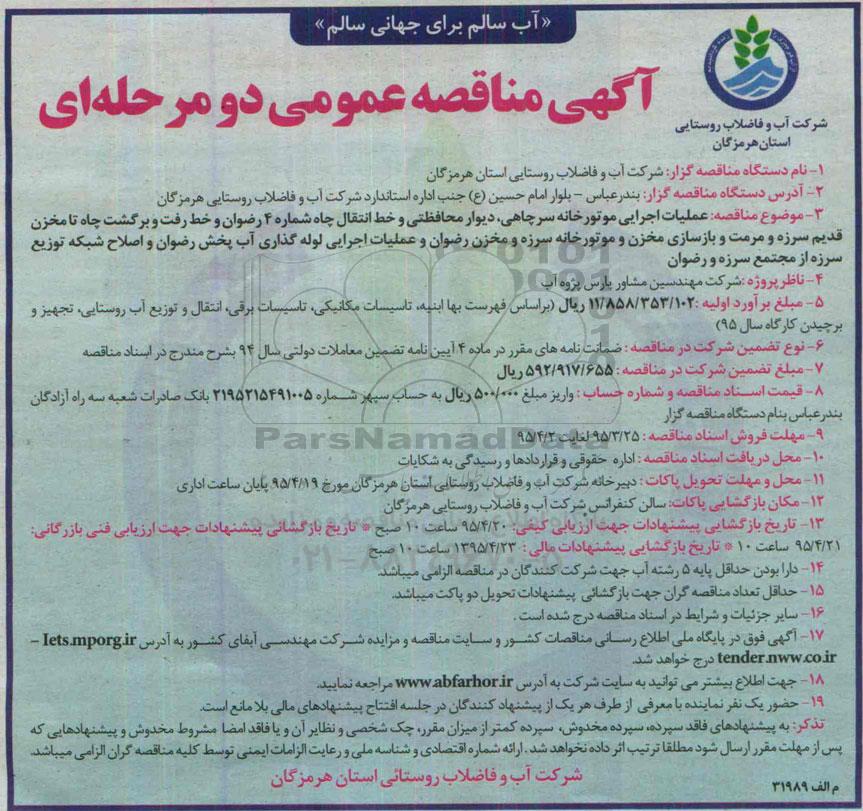 «آب سالم برای جهانی سالم»
آگهی مناقصه عمومی دو مرحله‌ای
شرکت آب و فاضلاب روستایی
استان هرمزگان
۱- نام دستگاه مناقصه گزار: شرکت آب و فاضلاب روستایی استان هرمزگان
۲- آدرس دستگاه مناقصه گزار: بندرعباس – بلوار امام حسین (ع) جنب اداره استاندارد شرکت آب و فاضلاب روستایی هرمزگان
۳- موضوع مناقصه: عملیات اجرایی موتورخانه سرچاهی، دیوار محافظتی و خط انتقال چاه شماره ۴ رضوان و خط رفت و برگشت چاه تا مخزن
قدیم سرزه و مرمت و بازسازی مخزن و موتورخانه سرزه و مخزن رضوان و عملیات اجرایی لوله گذاری آب پخش رضوان و اصلاح شبکه توزیع
سرزه از مجتمع سرزه و رضوان
۴- ناظر پروژه: شرکت مهندسین مشاور پارس پژوه آب
۵- مبلغ برآورد اولیه: ۱۱/۸۵۸/۳۵۳/۱۰۲ ریال (براساس فهرست بها ابنیه، تاسیسات مکانیکی، تاسیسات برقی، انتقال و توزیع آب روستایی، تجهیز و
برچیدن کارگاه سال ۹۵)
۶- نوع تضمین شرکت در مناقصه: ضمانت نامه های مقرر در ماده ۴ آیین نامه تضمین معاملات دولتی سال ۹۴ بشرح مندرج در اسناد مناقصه
۷- مبلغ تضمین شرکت در مناقصه: ۵۹۲/۹۱۷/۶۵۵ ریال
۸- قیمت اسناد مناقصه و شماره حساب: واریز مبلغ ۵۰۰/۰۰۰ ریال به حساب سپهر شماره ۲۱۹۵۲۱۵۴۹۱۰۰۵ بانک صادرات شعبه سه راه آزادگان
بندرعباس بنام دستگاه مناقصه گزار
ParsNamadData
۹- مهلت فروش اسناد مناقصه: ۹۵/۳/۲۵ لغایت ۹۵/۴/۲
۱۰- محل دریافت اسناد مناقصه: اداره حقوقی و قراردادها و رسیدگی به شکایات
۱۱- محل و مهلت تحویل پاکات: دبیرخانه شرکت آب و فاضلاب روستایی استان هرمزگان مورخ ۹۵/۴/۱۹ پایان ساعت اداری
۱۲- مکان بازگشایی پاکات: سالن کنفرانس شرکت آب و فاضلاب روستایی هرمزگان
۱۳- تاریخ بازگشایی پیشنهادات جهت ارزیابی کیفی: ۹۵/۴/۲۰ ساعت ۱۰ صبح * تاریخ بازگشائی پیشنهادات جهت ارزیابی فنی بازرگانی:
۹۵/۴/۲۱ ساعت ۱۰ * تاریخ بازگشایی پیشنهادات مالی: ۱۳۹۵/۴/۲۳ ساعت ۱۰ صبح
۱۴- دارا بودن حداقل پایه ۵ رشته آب جهت شرکت کنندگان در مناقصه الزامی میباشد.
۱۵- حداقل تعداد مناقصه گران جهت بازگشائی پیشنهادات تحویل دو پاکت میباشد.
۱۶- سایر جزئیات و شرایط در اسناد مناقصه درج شده است.
۱۷- آگهی فوق در پایگاه ملی اطلاع رسانی مناقصات کشور و سایت مناقصه و مزایده شرکت مهندسی آبفای کشور به آدرس Iets.mporg.ir –
tender.nww.co.ir درج خواهد شد.
۱۸- جهت اطلاع بیشتر می توانید به سایت شرکت به آدرس www.abfarhor.ir مراجعه نمایید.
۱۹- حضور یک نفر نماینده با معرفی از طرف هر یک از پیشنهاد کنندگان در جلسه افتتاح پیشنهادهای مالی بلا مانع است.
تذکر: به پیشنهادهای فاقد سپرده، سپرده مخدوش، سپرده کمتر از میزان مقرر، چک شخصی و نظایر آن و یا فاقد امضا مشروط مخدوش و پیشنهادهایی که
پس از مهلت مقرر ارسال شود مطلقا ترتیب اثر داده نخواهد شد. ارائه شماره اقتصادی و شناسه ملی و رعایت الزامات ایمنی توسط کلیه مناقصه گران الزامی میباشد.
شرکت آب و فاضلاب روستائی استان هرمزگان
م الف ۳۱۹۸۹